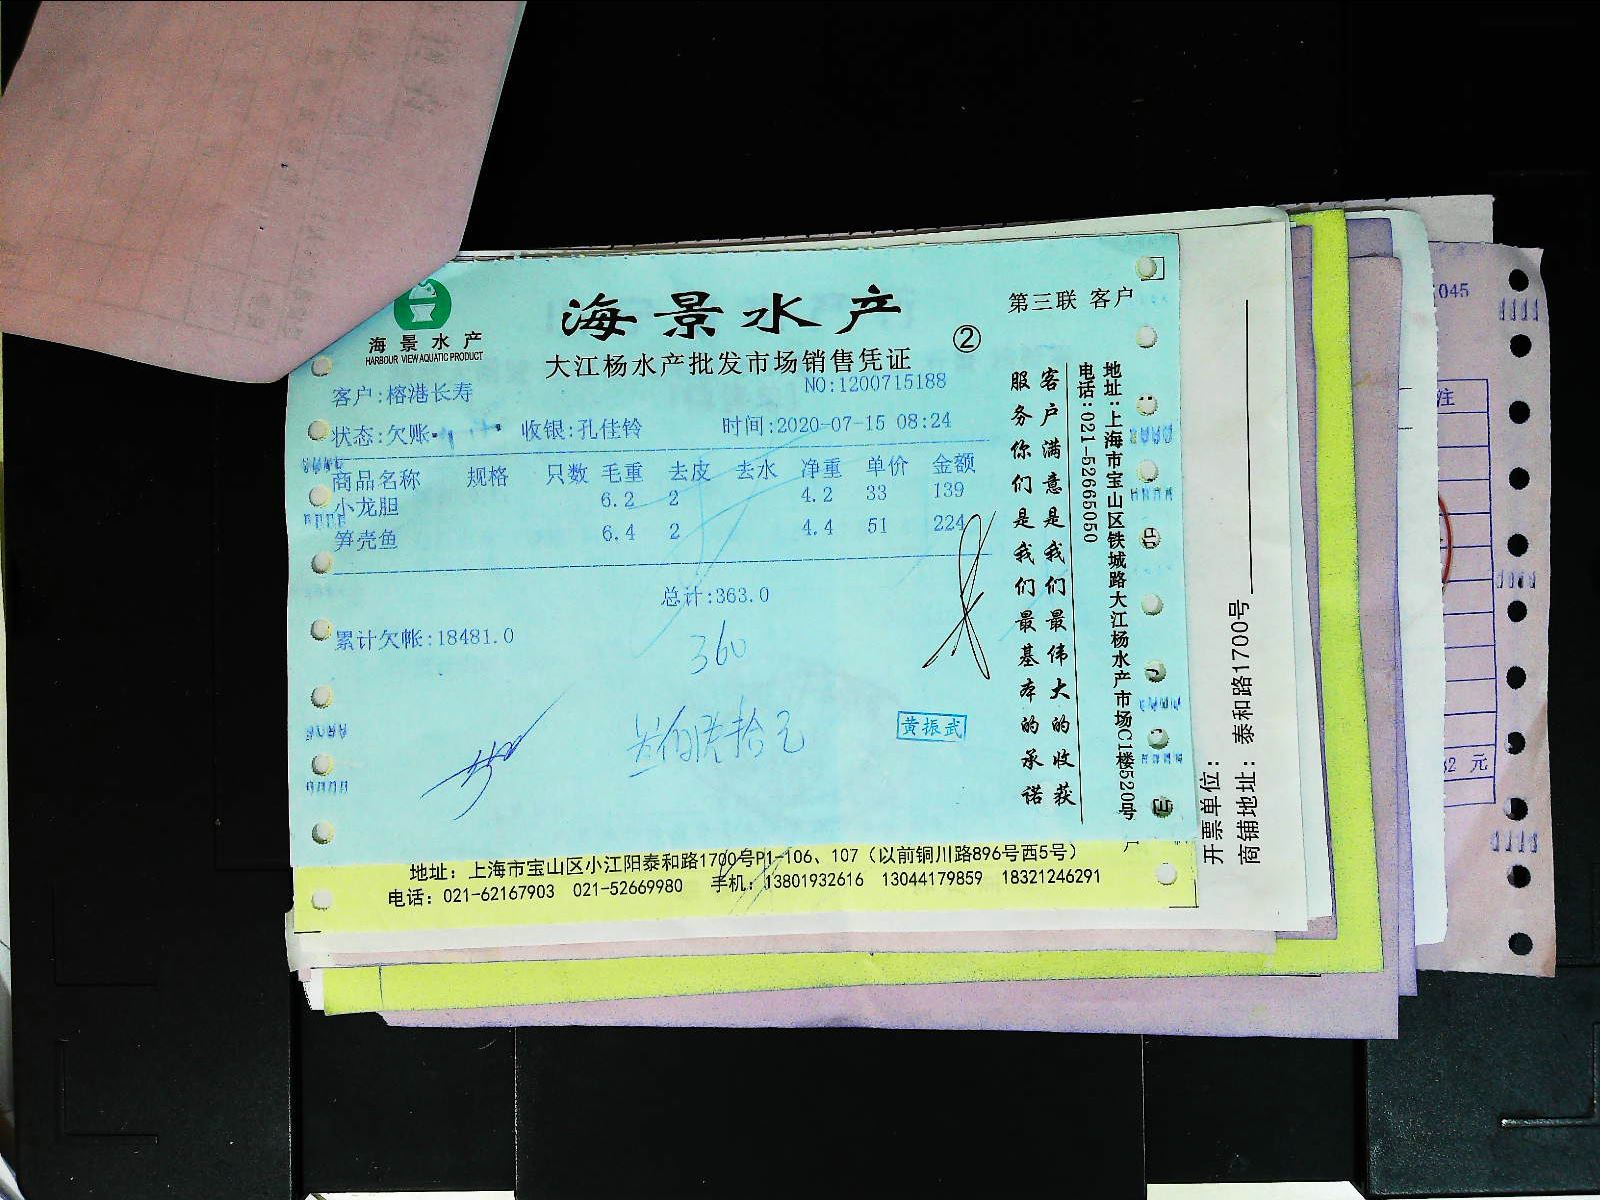 海景水产
HARBOUR VIEW AQUATIC PRODUCT
海景水产
大江杨水产批发市场销售凭证
②
第三联 客户
客户:榕港长寿
NO:1200715188
状态:欠账
收银:孔佳铃
时间:2020-07-15 08:24
商品名称 规格 只数 毛重 去皮 去水 净重 单价 金额
小龙胆 6.2 2 4.2 33 139
笋壳鱼 6.4 2 4.4 51 224
总计:363.0
累计欠帐:18481.0
360
叁佰陆拾元
黄振武
客户满意是我们最伟大的收获
服务你们是我们最基本的承诺
地址:上海市宝山区铁城路大江杨水产市场C1楼520号
电话:021-52665050
地址：上海市宝山区小江阳泰和路1700号P1-106、107（以前铜川路896号西5号）
电话：021-62167903 021-52669980 手机：13801932616 13044179859 18321246291
开票单位：
商铺地址：泰和路1700号
045
注
元